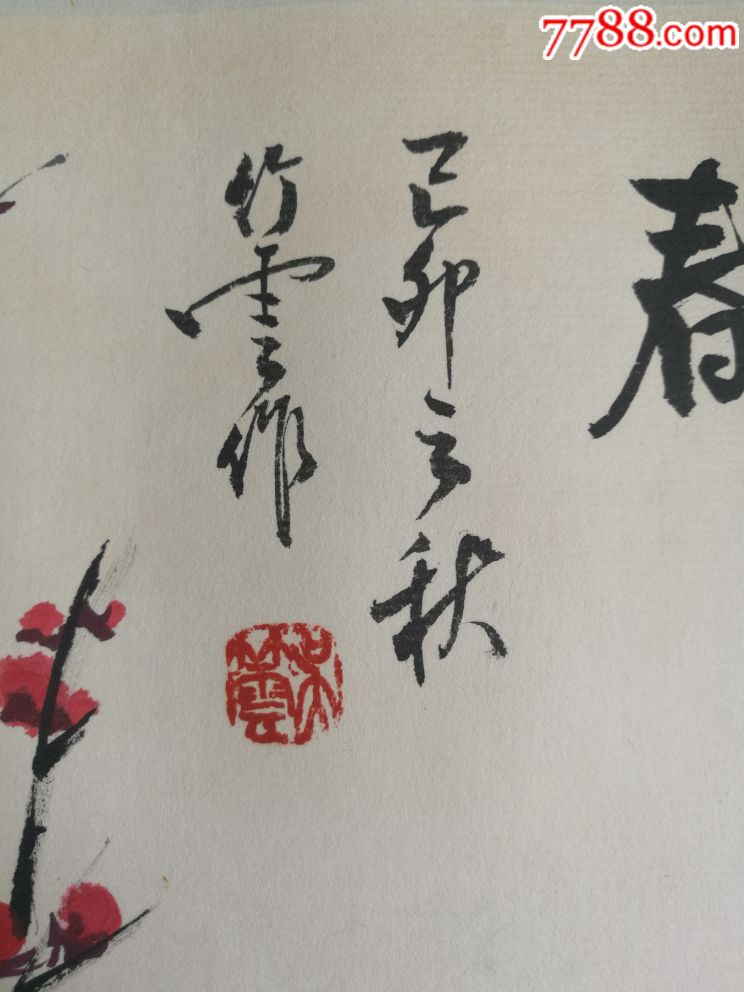 7788.com
春
己卯之秋
竹雲作